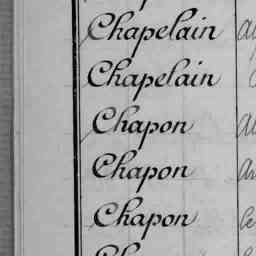 Chapelain
Chapelain
Chapon
Chapon
Chapon